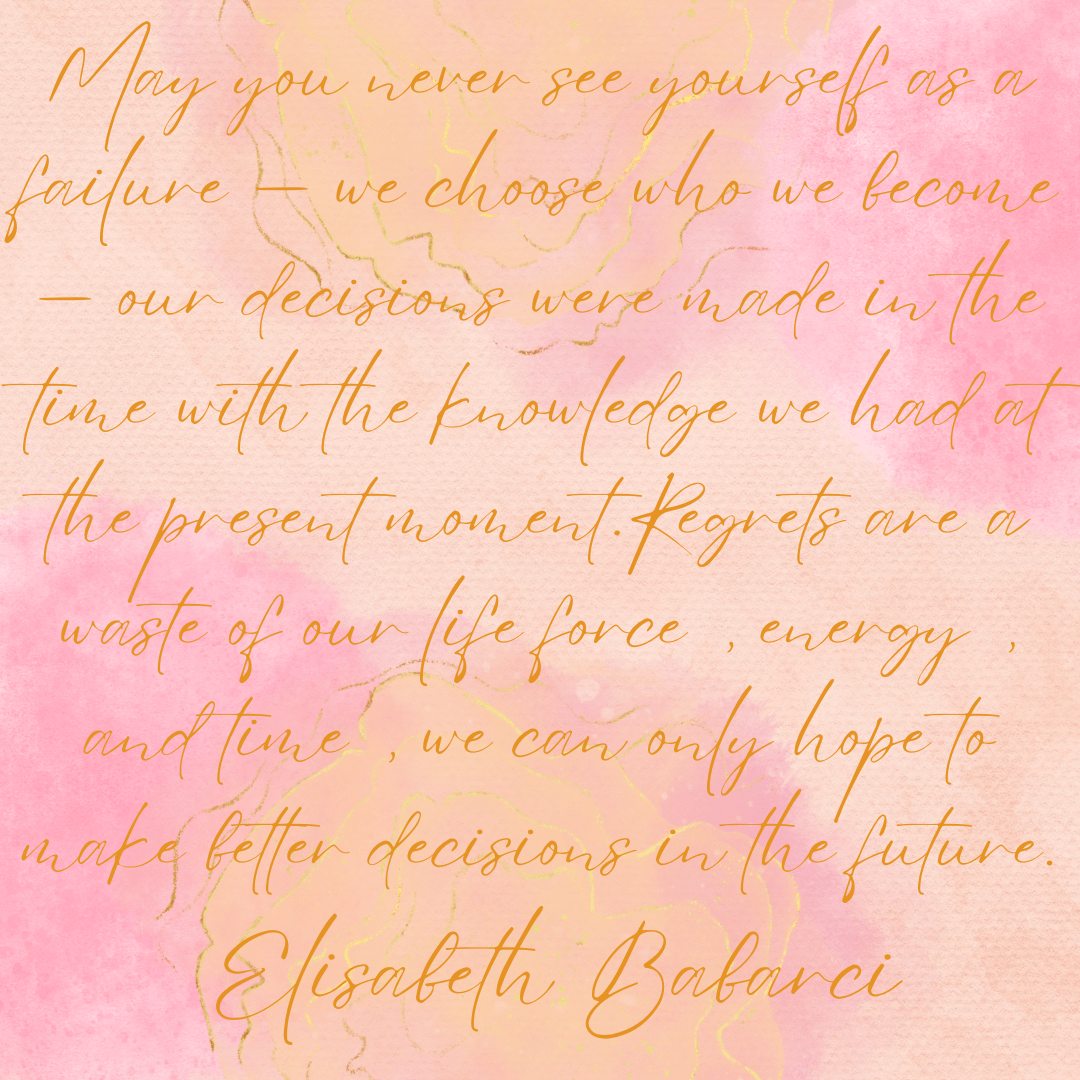 May you never see yourself as a
failure — we choose who we become
— our decisions were made in the
time with the knowledge we had at
the present moment.Regrets are a
waste of our life force , energy ,
and time , we can only hope to
make better decisions in the future.
Elisabeth Babarci